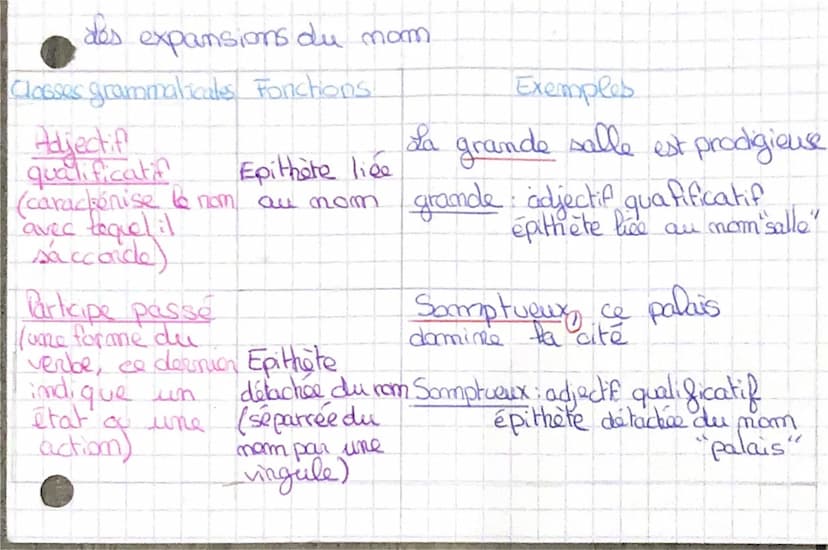 Les expansions du nom
Classes grammaticales Fonctions Exemples
Adjectif
qualificatif
(caractérise le nom
avec lequel il
s'accorde)
Epithète liée
au nom
La grande salle est prodigieuse
grande : adjectif qualificatif
épithète liée au nom "salle"
Participe passé
(une forme du
verbe, ce dernier
indique un
état ou une
action)
Epithète
détachée du nom
(séparrée du
nom par une
vingule)
Somptueux, ce palais
domine la cité
Somptueux : adjectif qualificatif
épithète détachée du nom
"palais"